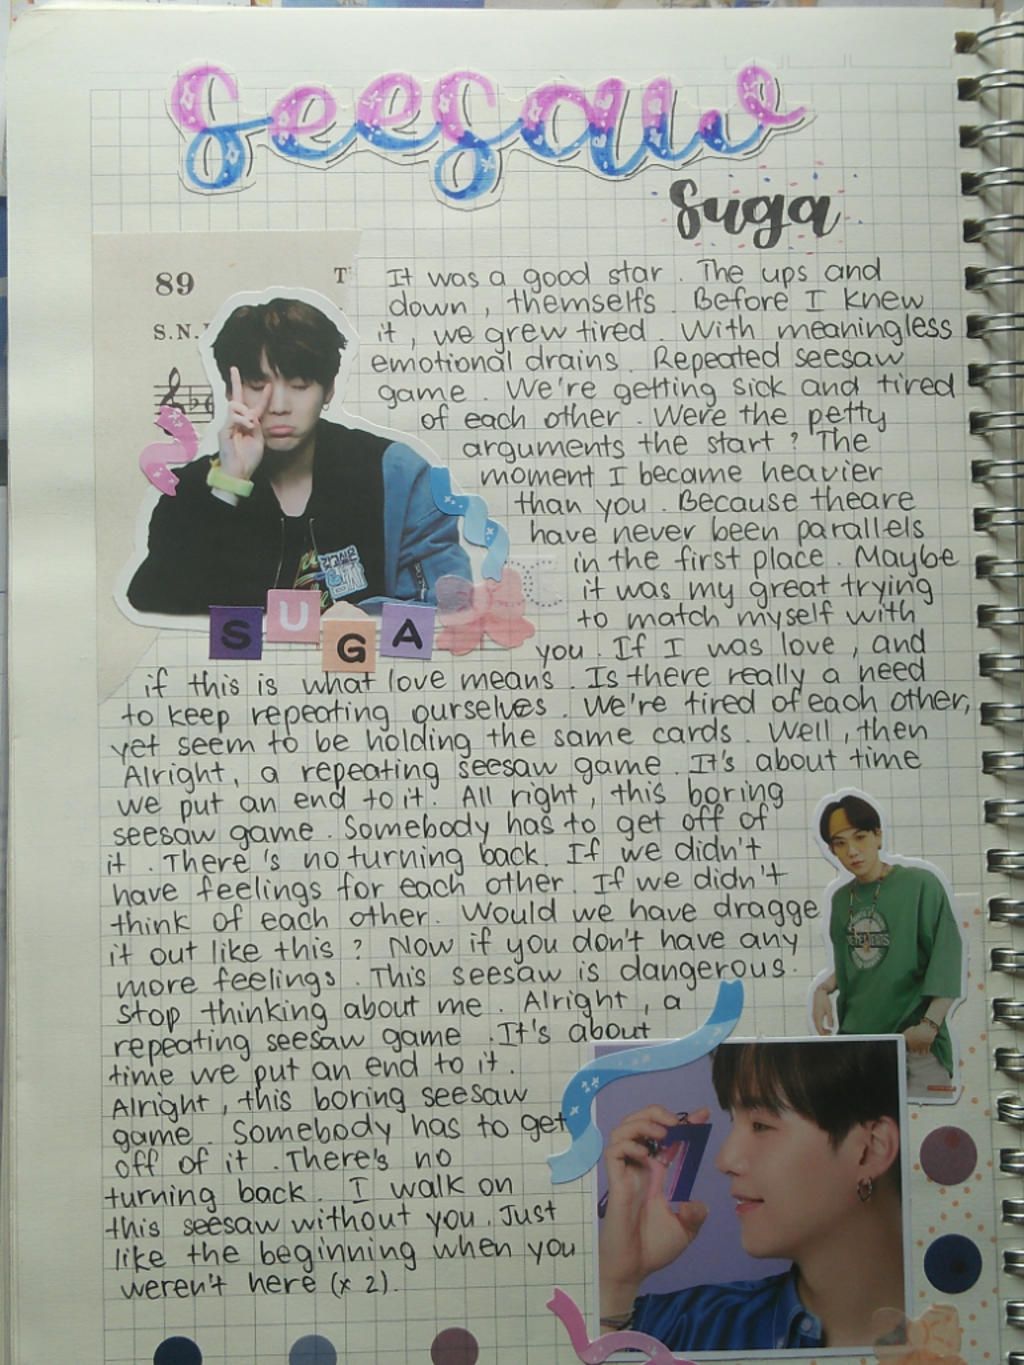 seesaw
suga
89 T
S.N.
It was a good star. The ups and
down, themselfs. Before I knew
it, we grew tired. With meaningless
emotional drains. Repeated seesaw
game. We're getting sick and tired
of each other. Were the petty
arguments the start? The
moment I became heavier
than you. Because theare
have never been parallels
in the first place. Maybe
it was my great trying
to match myself with
you. If I was love, and
SUGA
if this is what love means. Is there really a need
to keep repeating ourselves. We're tired of each other,
yet seem to be holding the same cards. Well, then
Alright, a repeating seesaw game. It's about time
we put an end to it. All right, this boring
seesaw game. Somebody has to get off of
it. There's no turning back. If we didn't
have feelings for each other. If we didn't
think of each other. Would we have dragge
it out like this? Now if you don't have any
more feelings. This seesaw is dangerous.
Stop thinking about me. Alright, a
repeating seesaw game. It's about
time we put an end to it.
Alright, this boring seesaw
game. Somebody has to get
off of it. There's no
turning back. I walk on
this seesaw without you. Just
like the beginning when you
weren't here (x 2).
7